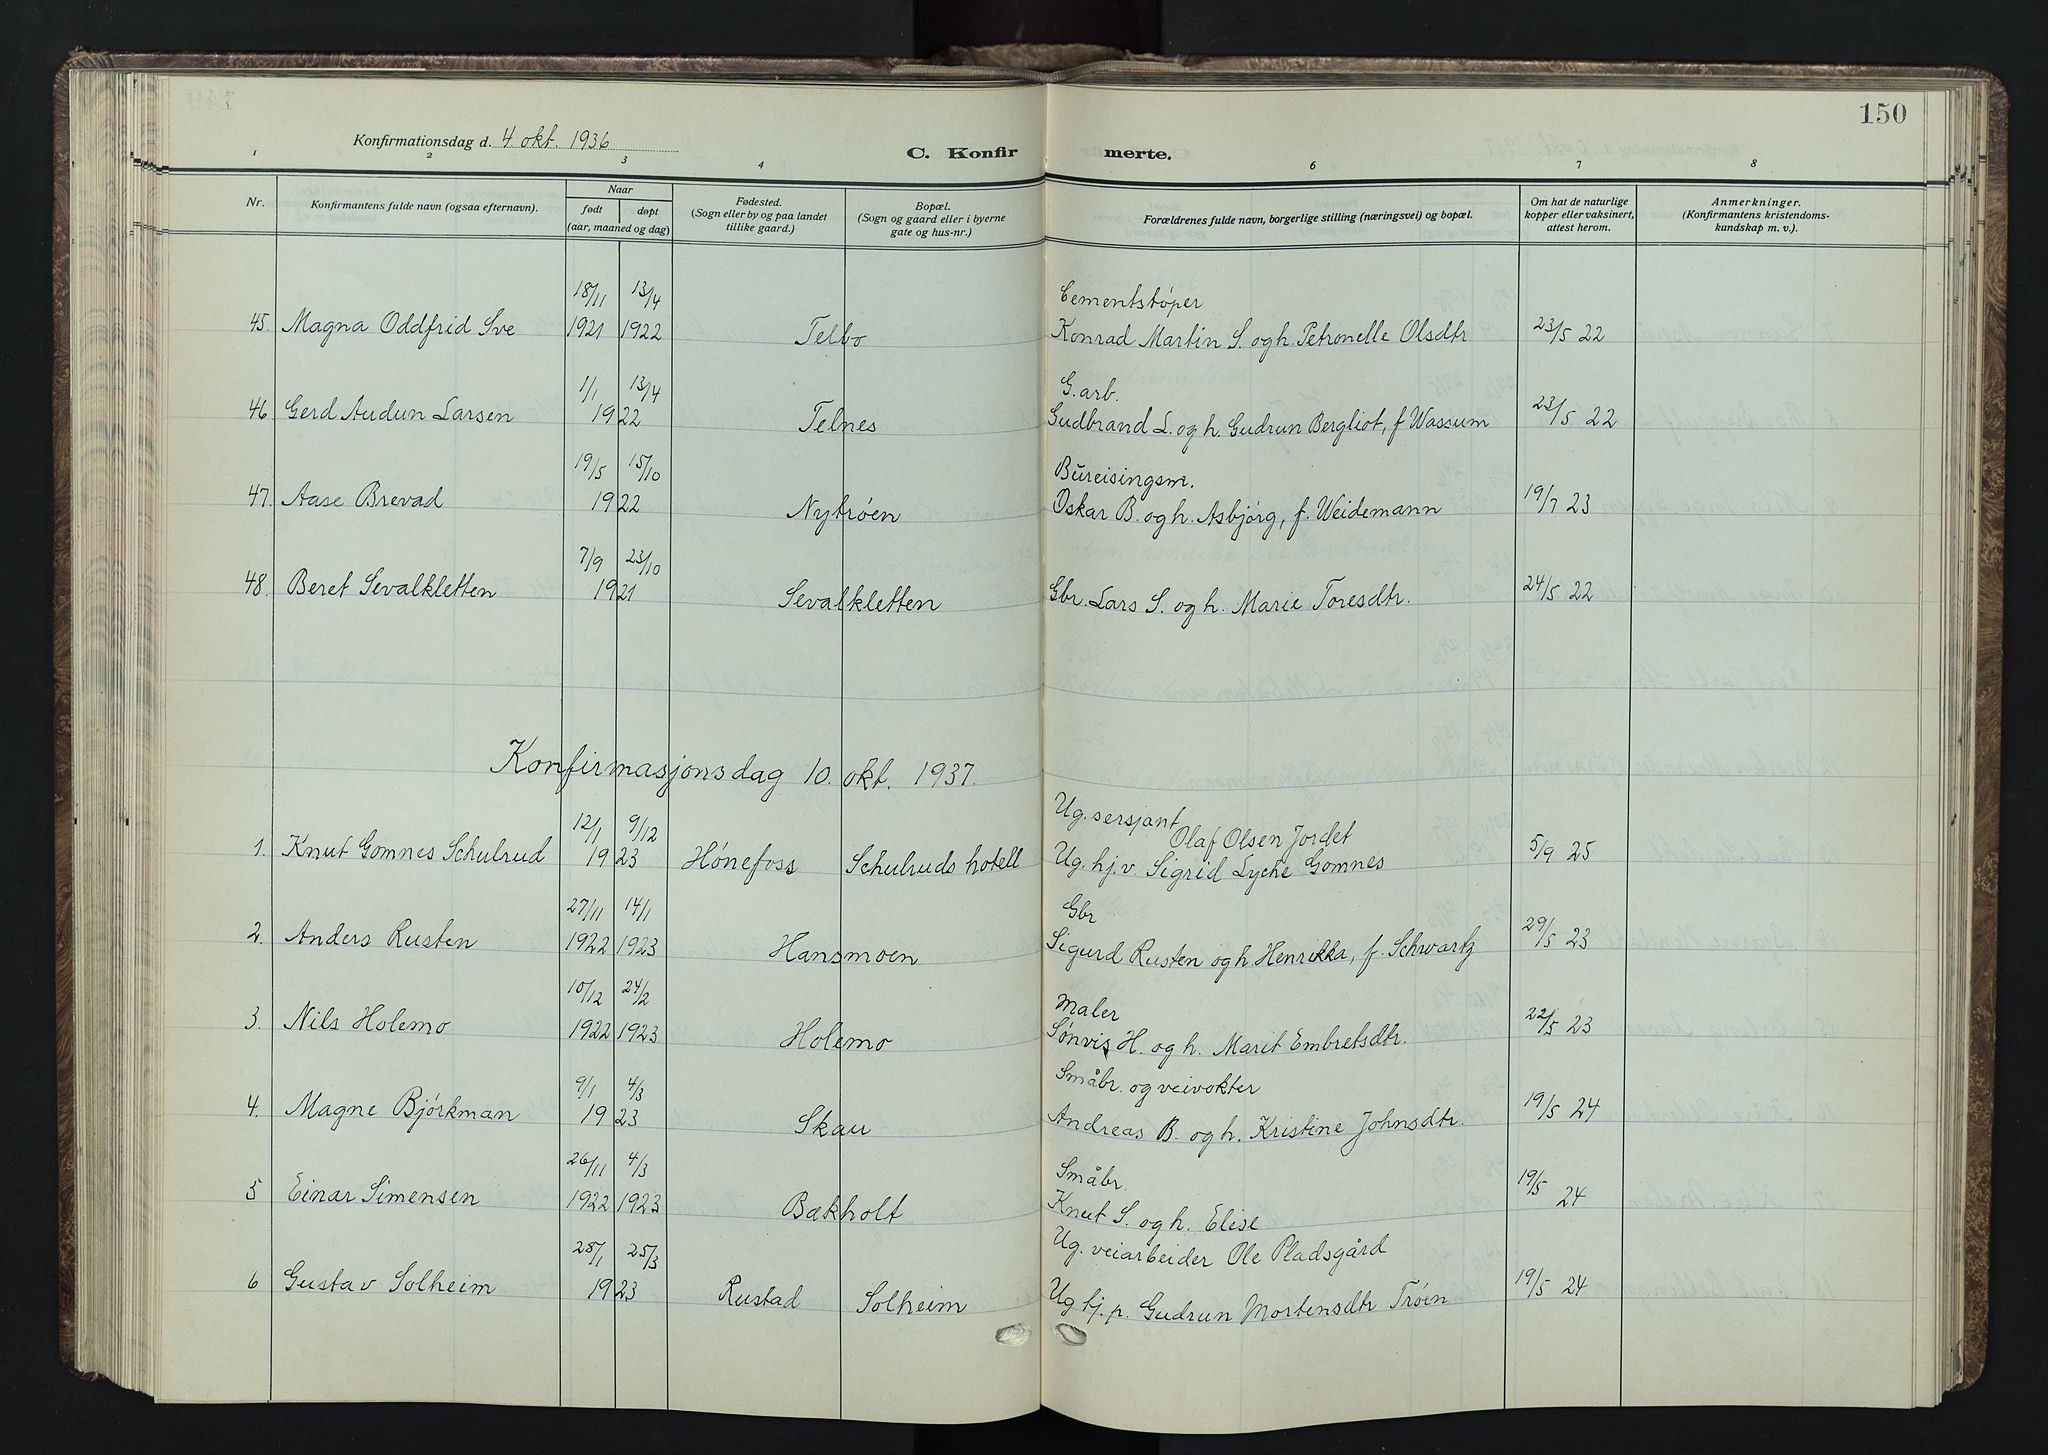 150
Konfirmationsdag d. 4 okt. 1936
C. Konfirmerte.
1 2 3 4 6 7 8
Nr.
Konfirmantens fulde navn (ogsaa efternavn).
Naar
født døpt
(aar, maaned og dag)
Fødested.
(Sogn eller by og paa landet
tillike gaard.)
Bopæl.
(Sogn og gaard eller i byerne
gate og hus-nr.)
Forældrenes fulde navn, borgerlige stilling (næringsvei) og bopæl.
Om hat de naturlige
kopper eller vaksinert,
attest herom.
Anmerkninger.
(Konfirmantens kristendoms-
kundskap m. v.).
18/11 13/4 Cementstøper
45. Magna Oddfrid Sve 1921 1922 Telbo Konrad Martin S. og h. Petronelle Olsdtr 23/5 22
1/1 13/4 G.arb.
46 Gerd Audun Larsen 1922 Telnes Gudbrand L. og h. Gudrun Bergliot, f Wassum 23/5 22
19/5 15/10 Bureisingsm.
47. Aase Brevad 1922 Nytrøen Oskar B. og h. Asbjørg, f. Weidemann 19/7 23
7/9 23/10
48. Beret Sevalkletten 1921 Sevalkletten Gbr. Lars S. og h. Marie Toresdtr. 24/5 22
Konfirmasjonsdag 10. okt. 1937.
12/1 9/12 Ug. sersjant Olaf Olsen Jordet
1. Knut Gomnes Schulrud 1923 Hønefoss Schulruds hotell Ug. hj.v. Sigrid Lycke Gomnes 5/9 25
27/11 14/1 Gbr
2. Anders Rusten 1922 1923 Hansmoen Sigurd Rusten og h. Henrikka, f. Schwartz 29/5 23
10/12 24/2 Maler
3. Nils Holemo 1922 1923 Holemo Sønvis H. og h. Marit Embretsdtr. 22/5 23
9/1 4/3 Småbr. og veivokter
4. Magne Bjørkman 1923 Skau Andreas B. og h. Kristine Johnsdtr. 19/5 24
26/11 4/3 Småbr.
5 Einar Simensen 1922 1923 Bækholt Knut S. og h. Elise 19/5 24
28/1 25/3 Ug. veiarbeider Ole Pladsgård
6 Gustav Solheim 1923 Rustad Solheim Ug tj. p. Gudrun Mortensdtr Trøen 19/5 24